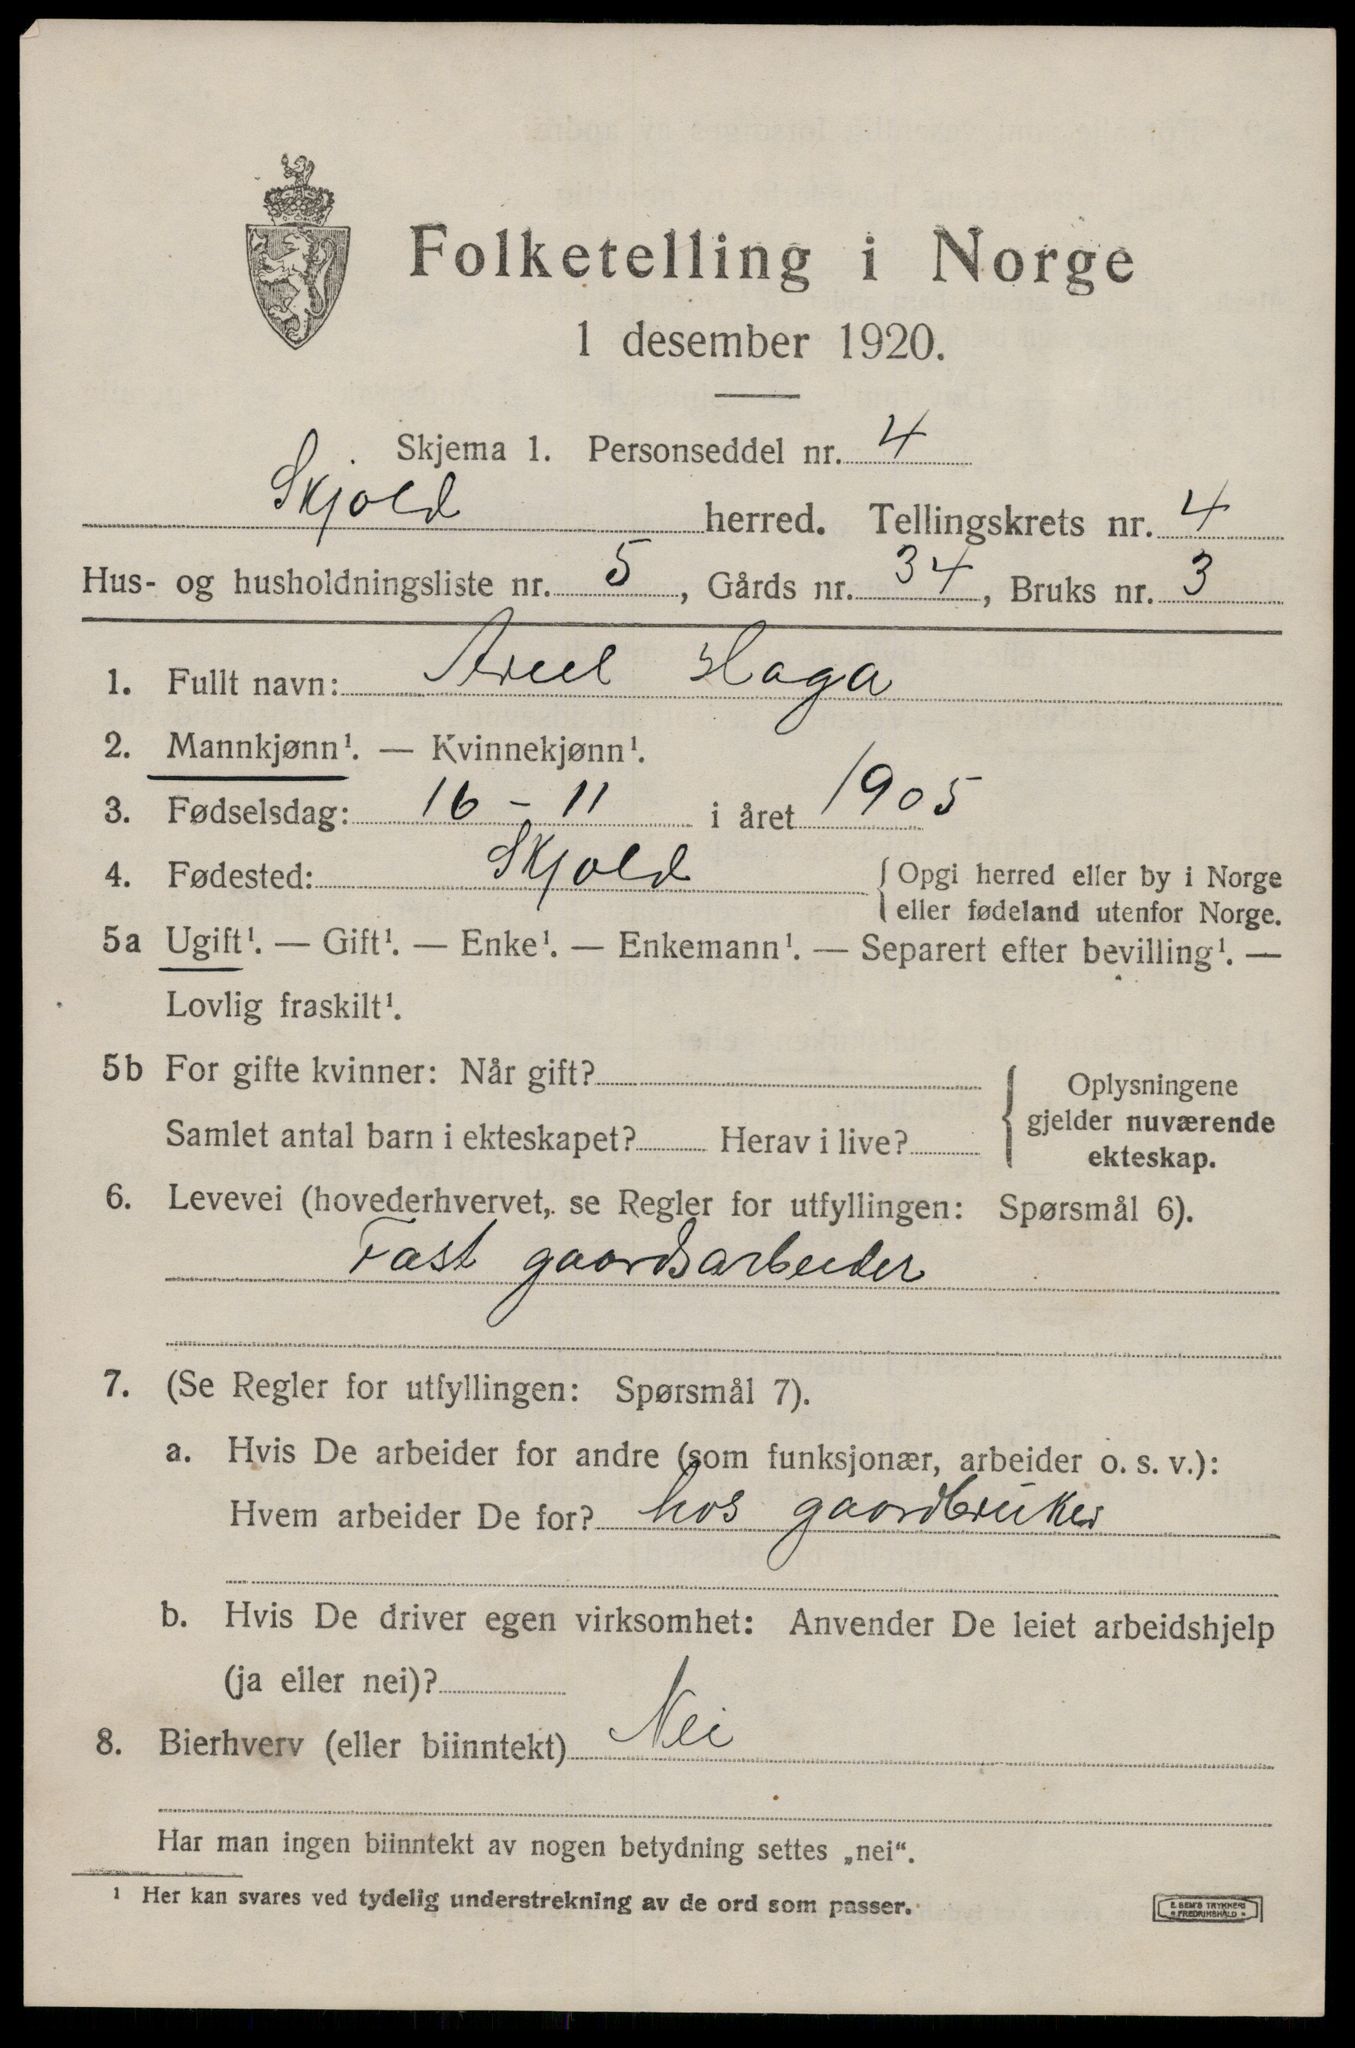 Folketelling i Norge
1 desember 1920.
Skjema 1. Personseddel nr. 4
Skjold herred. Tellingskrets nr. 4
Hus- og husholdningsliste nr. 5, Gårds nr. 34, Bruks nr. 3
1. Fullt navn: Haga
2. Mannkjønn¹. — Kvinnekjønn¹.
3. Fødselsdag: 16 - 11 i året 1905
4. Fødested: Skjold { Opgi herred eller by i Norge
eller fødeland utenfor Norge.
5a Ugift¹. — Gift¹. — Enke¹. — Enkemann¹. — Separert efter bevilling¹. —
Lovlig fraskilt¹.
5b For gifte kvinner: Når gift?
Samlet antal barn i ekteskapet? Herav i live?
{ Oplysningene
gjelder nuværende
ekteskap.
6. Levevei (hovederhvervet, se Regler for utfyllingen: Spørsmål 6).
Fast gaardsarbeider
7. (Se Regler for utfyllingen: Spørsmål 7).
a. Hvis De arbeider for andre (som funksjonær, arbeider o. s. v.):
Hvem arbeider De for? hos gaardbruker
b. Hvis De driver egen virksomhet: Anvender De leiet arbeidshjelp
(ja eller nei)?
8. Bierhverv (eller biinntekt) Nei
Har man ingen biinntekt av nogen betydning settes „nei“.
¹ Her kan svares ved tydelig understrekning av de ord som passer.
E. SEM'S TRYKKERI
FREDRIKSHALD